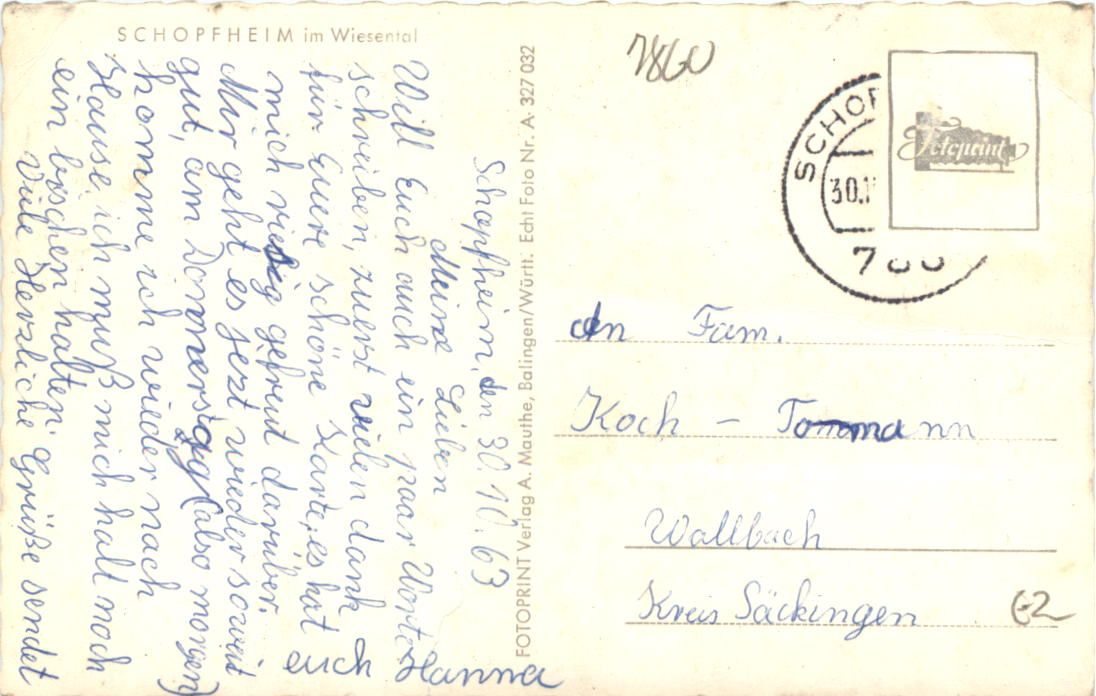 SCHOPFHEIM im Wiesental
Schopfheim, den 30.10.63
Meine Lieben
Will Euch auch ein paar Worte
schreiben, zuerst vielen dank
für Euere schöne Karte, es hat
mich riesig gefreut darüber.
Mir geht es jezt wieder soweit
gut, am Donnerstag (also morgen)
komme ich wieder nach
Hause, ich muß mich halt noch
ein bischen halten.
Viele Herzliche Grüße sendet
euch Hanna
FOTOPRINT Verlag A. Mauthe, Balingen/Württ. Echt Foto Nr. A 327 032
7860
SCHOPF
30.1
Fotoprint
An Fam.
Koch - Tommann
Wallbach
Kreis Säckingen